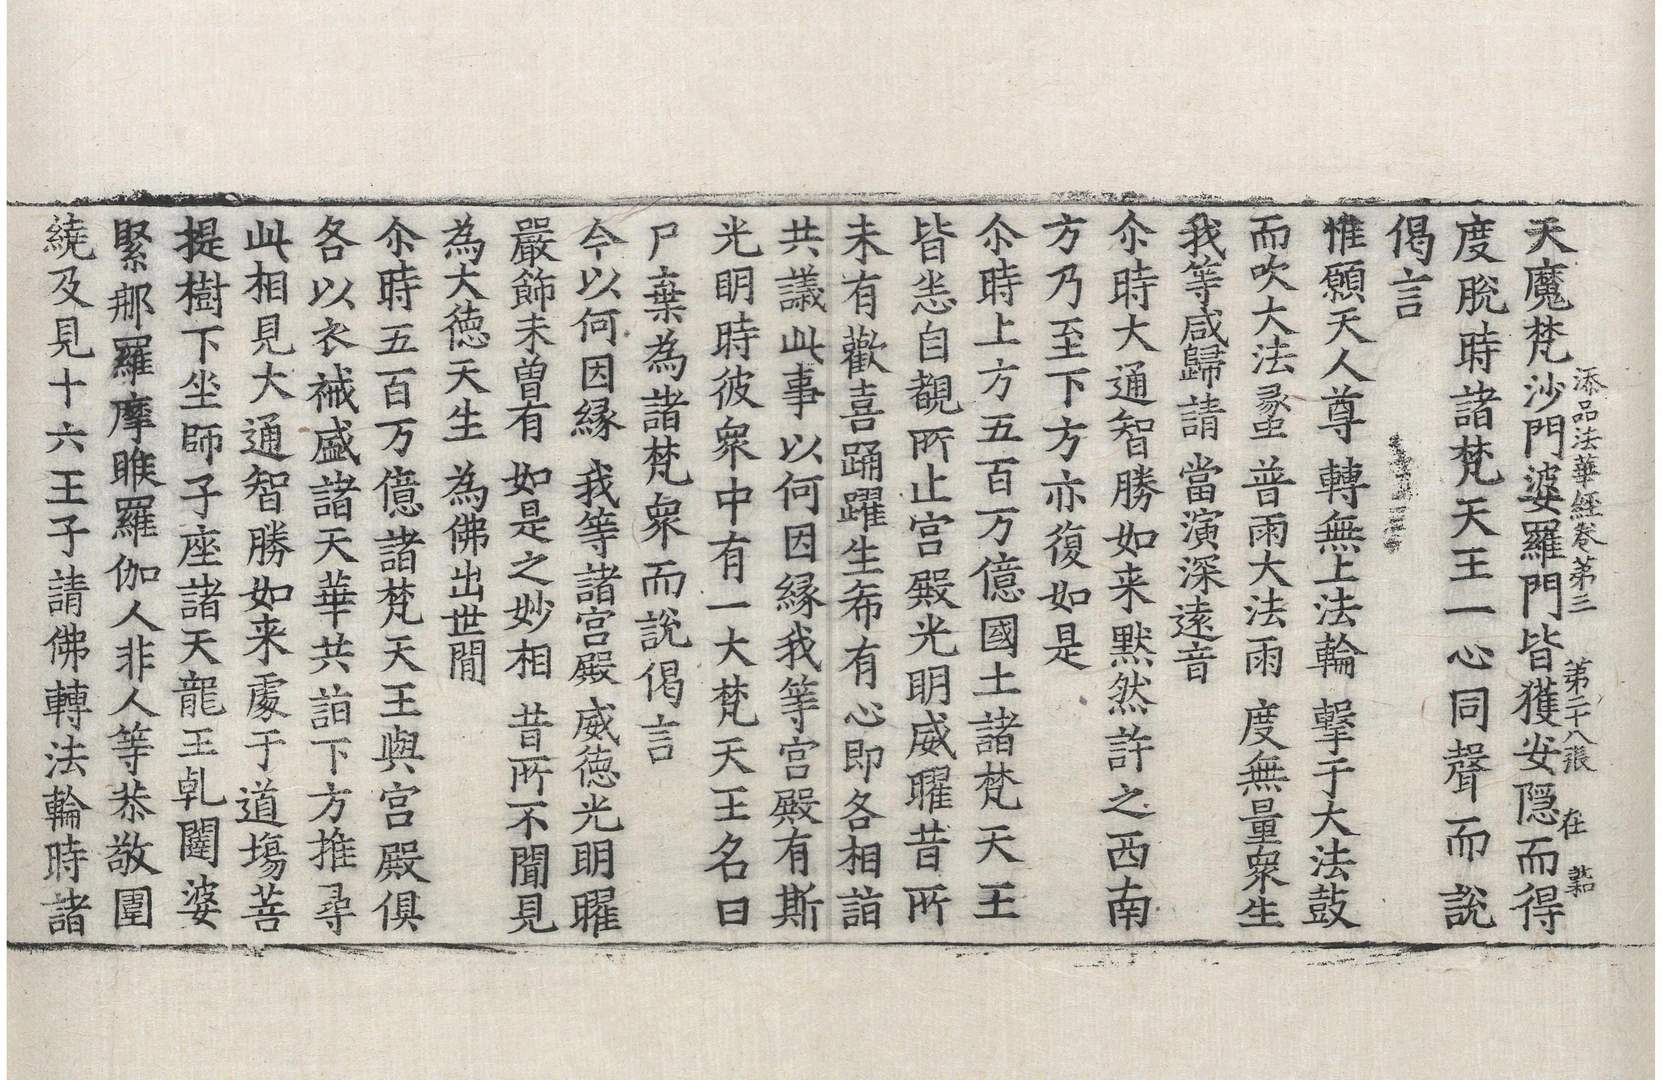 添品法華經卷第三 第二十八張 在 茹
天魔梵沙門婆羅門皆獲安隱而得
度脫時諸梵天王一心同聲而說
偈言
惟願天人尊 轉無上法輪 擊于大法鼓
而吹大法䗍 普雨大法雨 度無量衆生
我等咸歸請 當演深遠音
尒時大通智勝如来默然許之西南
方乃至下方亦復如是
尒時上方五百万億國土諸梵天王
皆悉自覩所止宫殿光明威曜昔所
未有歡喜踊躍生希有心即各相詣
共議此事以何因縁我等宫殿有斯
光明時彼衆中有一大梵天王名曰
尸棄為諸梵衆而說偈言
今以何因縁 我等諸宫殿 威徳光明曜
嚴飾未曽有 如是之妙相 昔所不聞見
為大徳天生 為佛出世間
尒時五百万億諸梵天王與宫殿俱
各以衣祴盛諸天華共詣下方推尋
此相見大通智勝如来處于道場菩
提樹下坐師子座諸天龍王乹闥婆
緊那羅摩睺羅伽人非人等恭敬圍
繞及見十六王子請佛轉法輪時諸